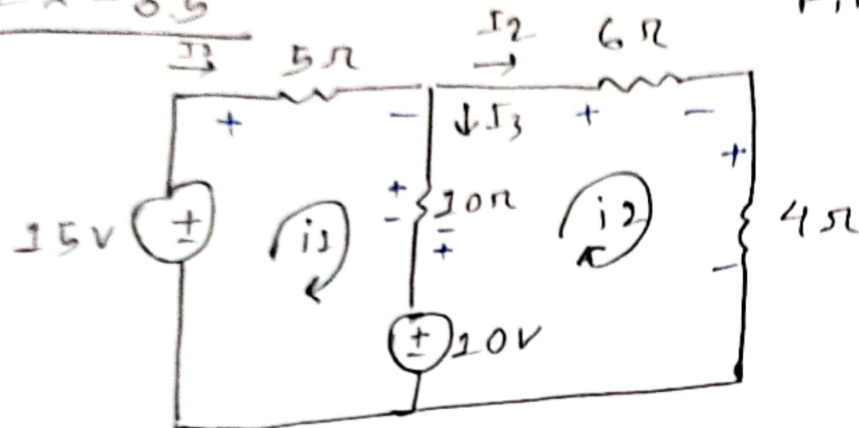 I2 6Ω
5Ω
+ - ↓I3 + -
+
15V ± i1 + - 10Ω - + i2 4Ω
-
± 10V